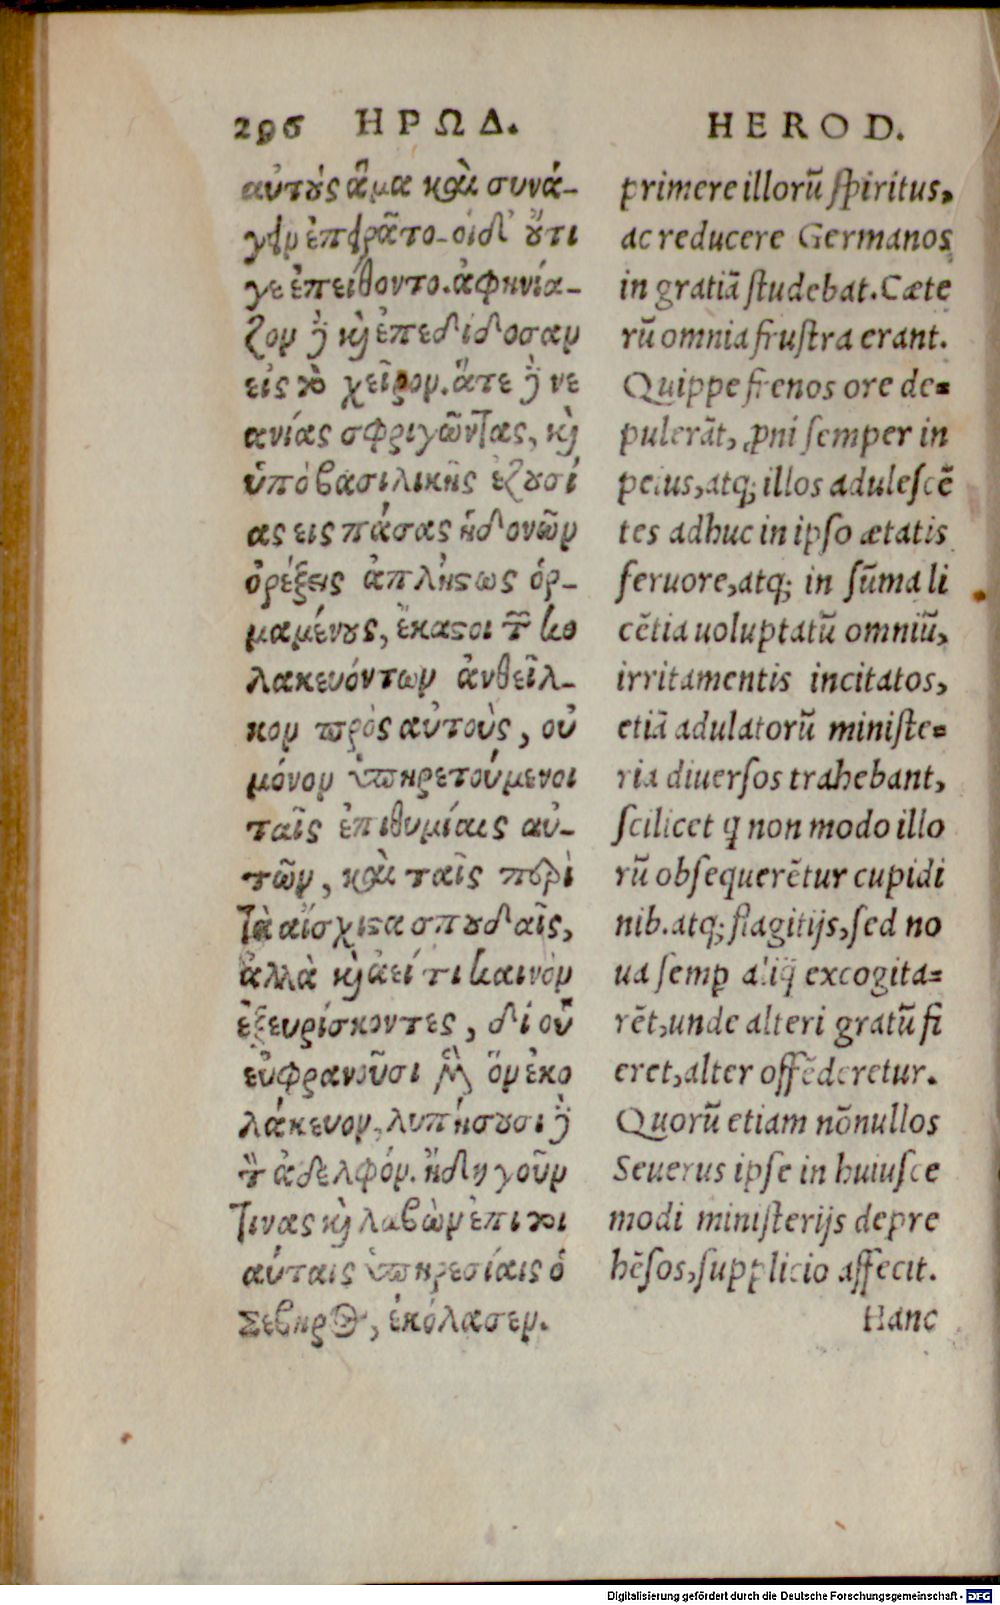 296 ΗΡΩΔ.
αὐτοὺς ἅμα καὶ συνά-
γειν ἐπειρᾶτο. οἱ δ' οὔτι
γε ἐπείθοντο. ἀφηνία-
ζον δὲ καὶ ἐπεδίδοσαν
εἰς τὸ χεῖρον. ἅτε δὲ νε
ανίας σφριγῶντας, καὶ
ὑπὸ βασιλικῆς ἐξουσί
ας εις πάσας ἡδονῶν
ὀρέξεις ἀπλήστως ὁρ-
μαμένους, ἕκαστοι τῶν κο
λακευόντων ἀνθεῖλ-
κον πρὸς αὐτοὺς, οὐ
μόνον ὑπηρετούμενοι
ταῖς ἐπιθυμίαις αὐ-
τῶν, καὶ ταῖς περὶ
τὰ αἴσχιστα σπουδαῖς,
ἀλλὰ καὶ ἀεί τι καινὸν
ἐξευρίσκοντες, δι οὗ
εὐφρανοῦσι μὲν ὃν ἐκο
λάκευον, λυπήσουσι δὲ
τὸν ἀδελφόν. ἤδη γοῦν
τινας καὶ λαβὼν ἐπι τοι
αύταις ὑπηρεσίαις ὁ
Σεβηρος, ἐκόλασεν.
HEROD.
primere illorū spiritus,
ac reducere Germanos
in gratiā studebat. Cæte
rū omnia frustra erant.
Quippe frenos ore de=
pulerāt, ꝓni semper in
peius, atq; illos adulescē
tes adhuc in ipso ætatis
feruore, atq; in sūma li
cētia uoluptatū omniū,
irritamentis incitatos,
etiā adulatorū ministe=
ria diuersos trahebant,
scilicet q non modo illo
rū obsequerētur cupidi
nib. atq; flagitijs, sed no
ua semꝑ aliq̈ excogita=
rēt, unde alteri gratū fi
eret, alter offēderetur.
Quorū etiam nōnullos
Seuerus ipse in huiusce
modi ministerijs depre
hēsos, supplicio affecit.
Hanc
Digitalisierung gefördert durch die Deutsche Forschungsgemeinschaft - DFG